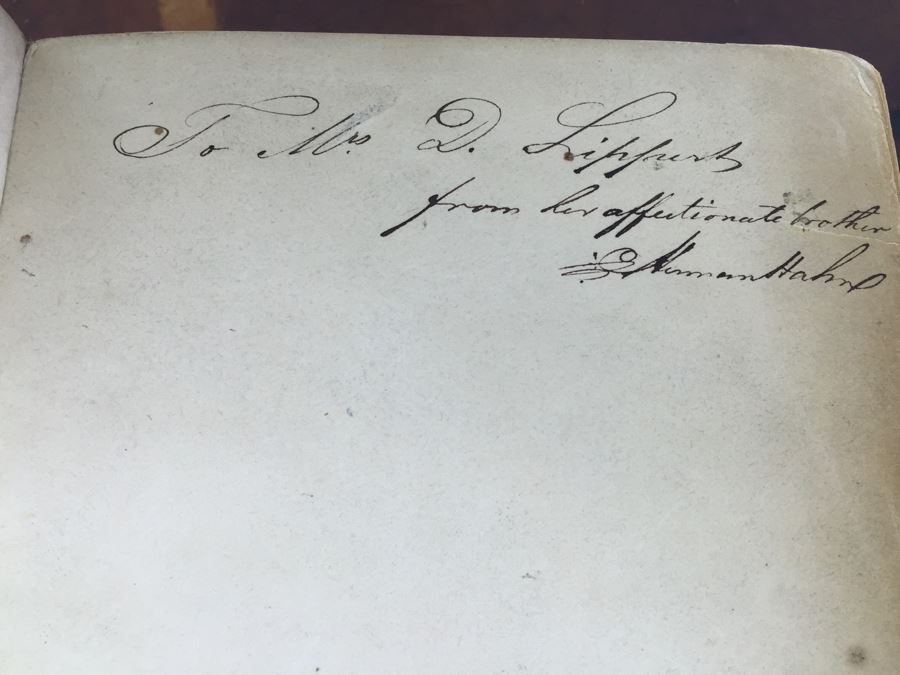 To Mrs D. Lippert
from her affectionate brother
Herman Hahn